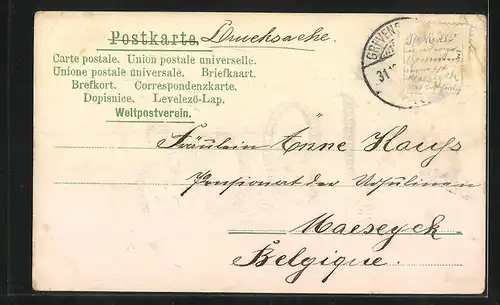 Postkarte. Drucksache.
Carte postale. Union postale universelle.
Unione postale universale. Briefkaart.
Brefkort. Correspondenzkarte.
Dopisnice. Levelező-Lap.
Weltpostverein.
31.12
Fräulein Änne Hauss
Pensionat der Ursulinen
Maeseyck
Belgique.